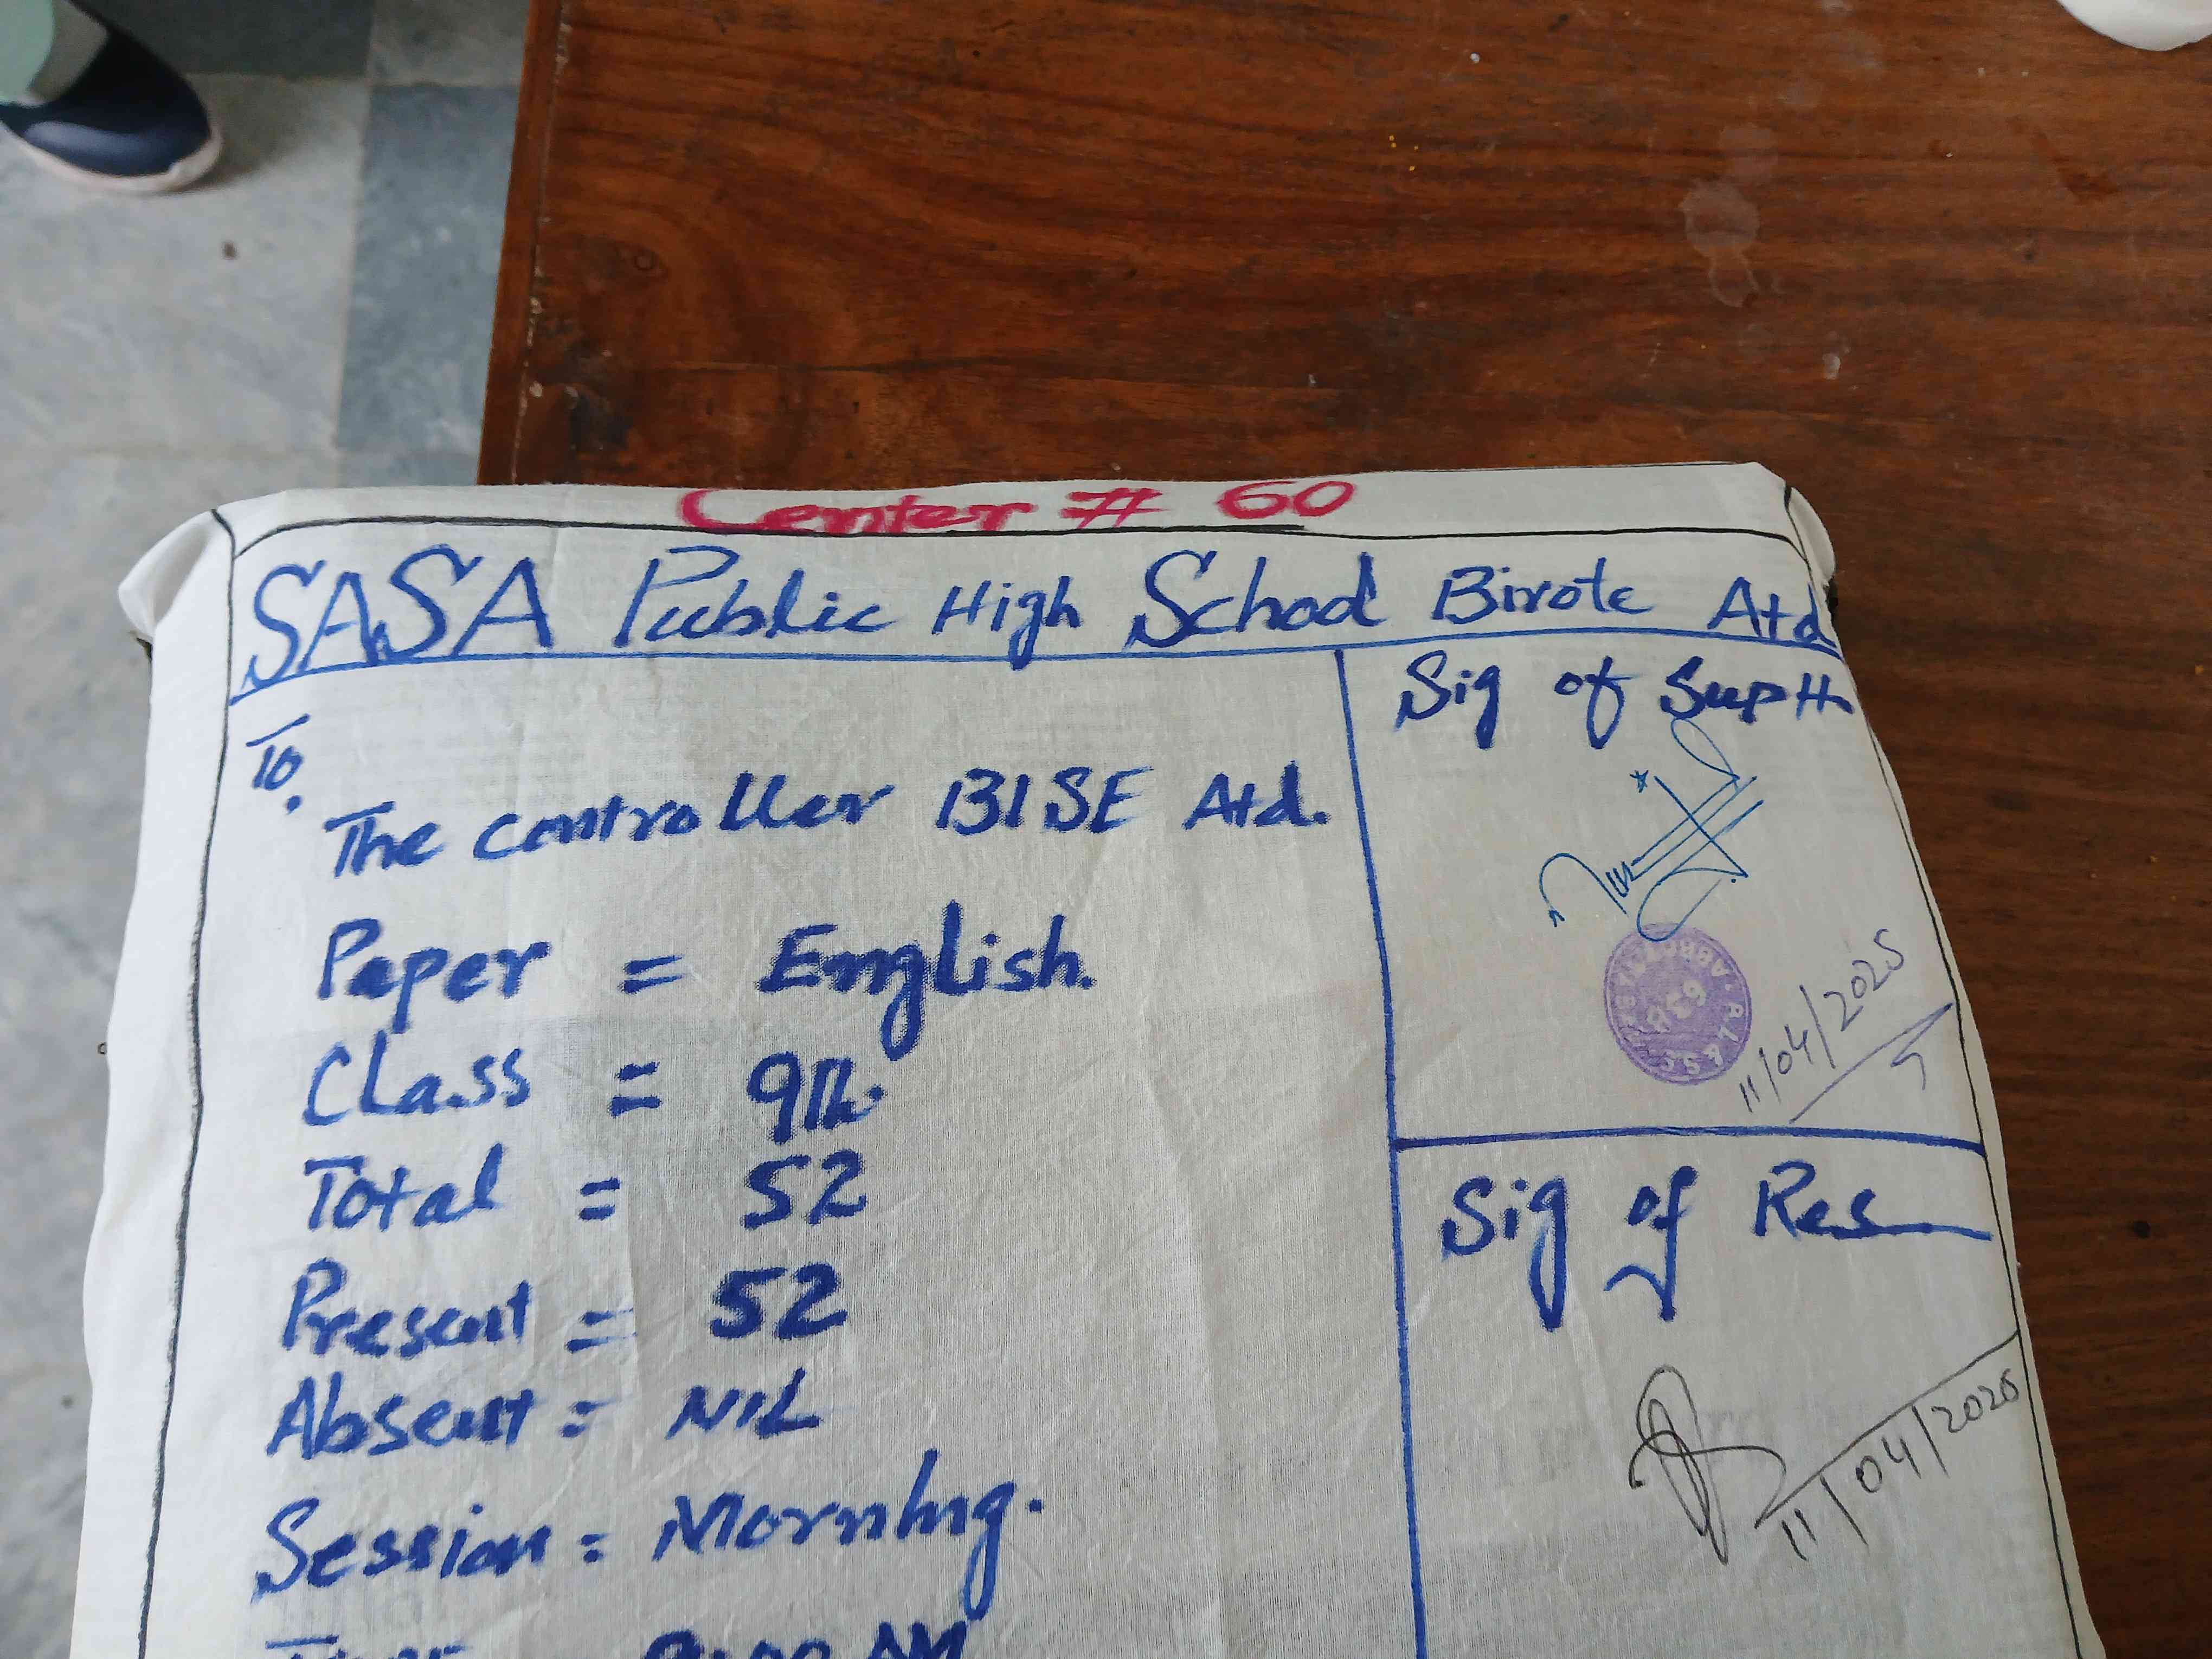 Center # 60
SASA Public High School Birote Atd
To,
The controller BISE Atd.
Paper = English.
Class = 9th.
Total = 52
Present = 52
Absent = NIL
Session = Morning.
Sig of Suptt.
11/04/2025
Sig of Res
11/04/2025